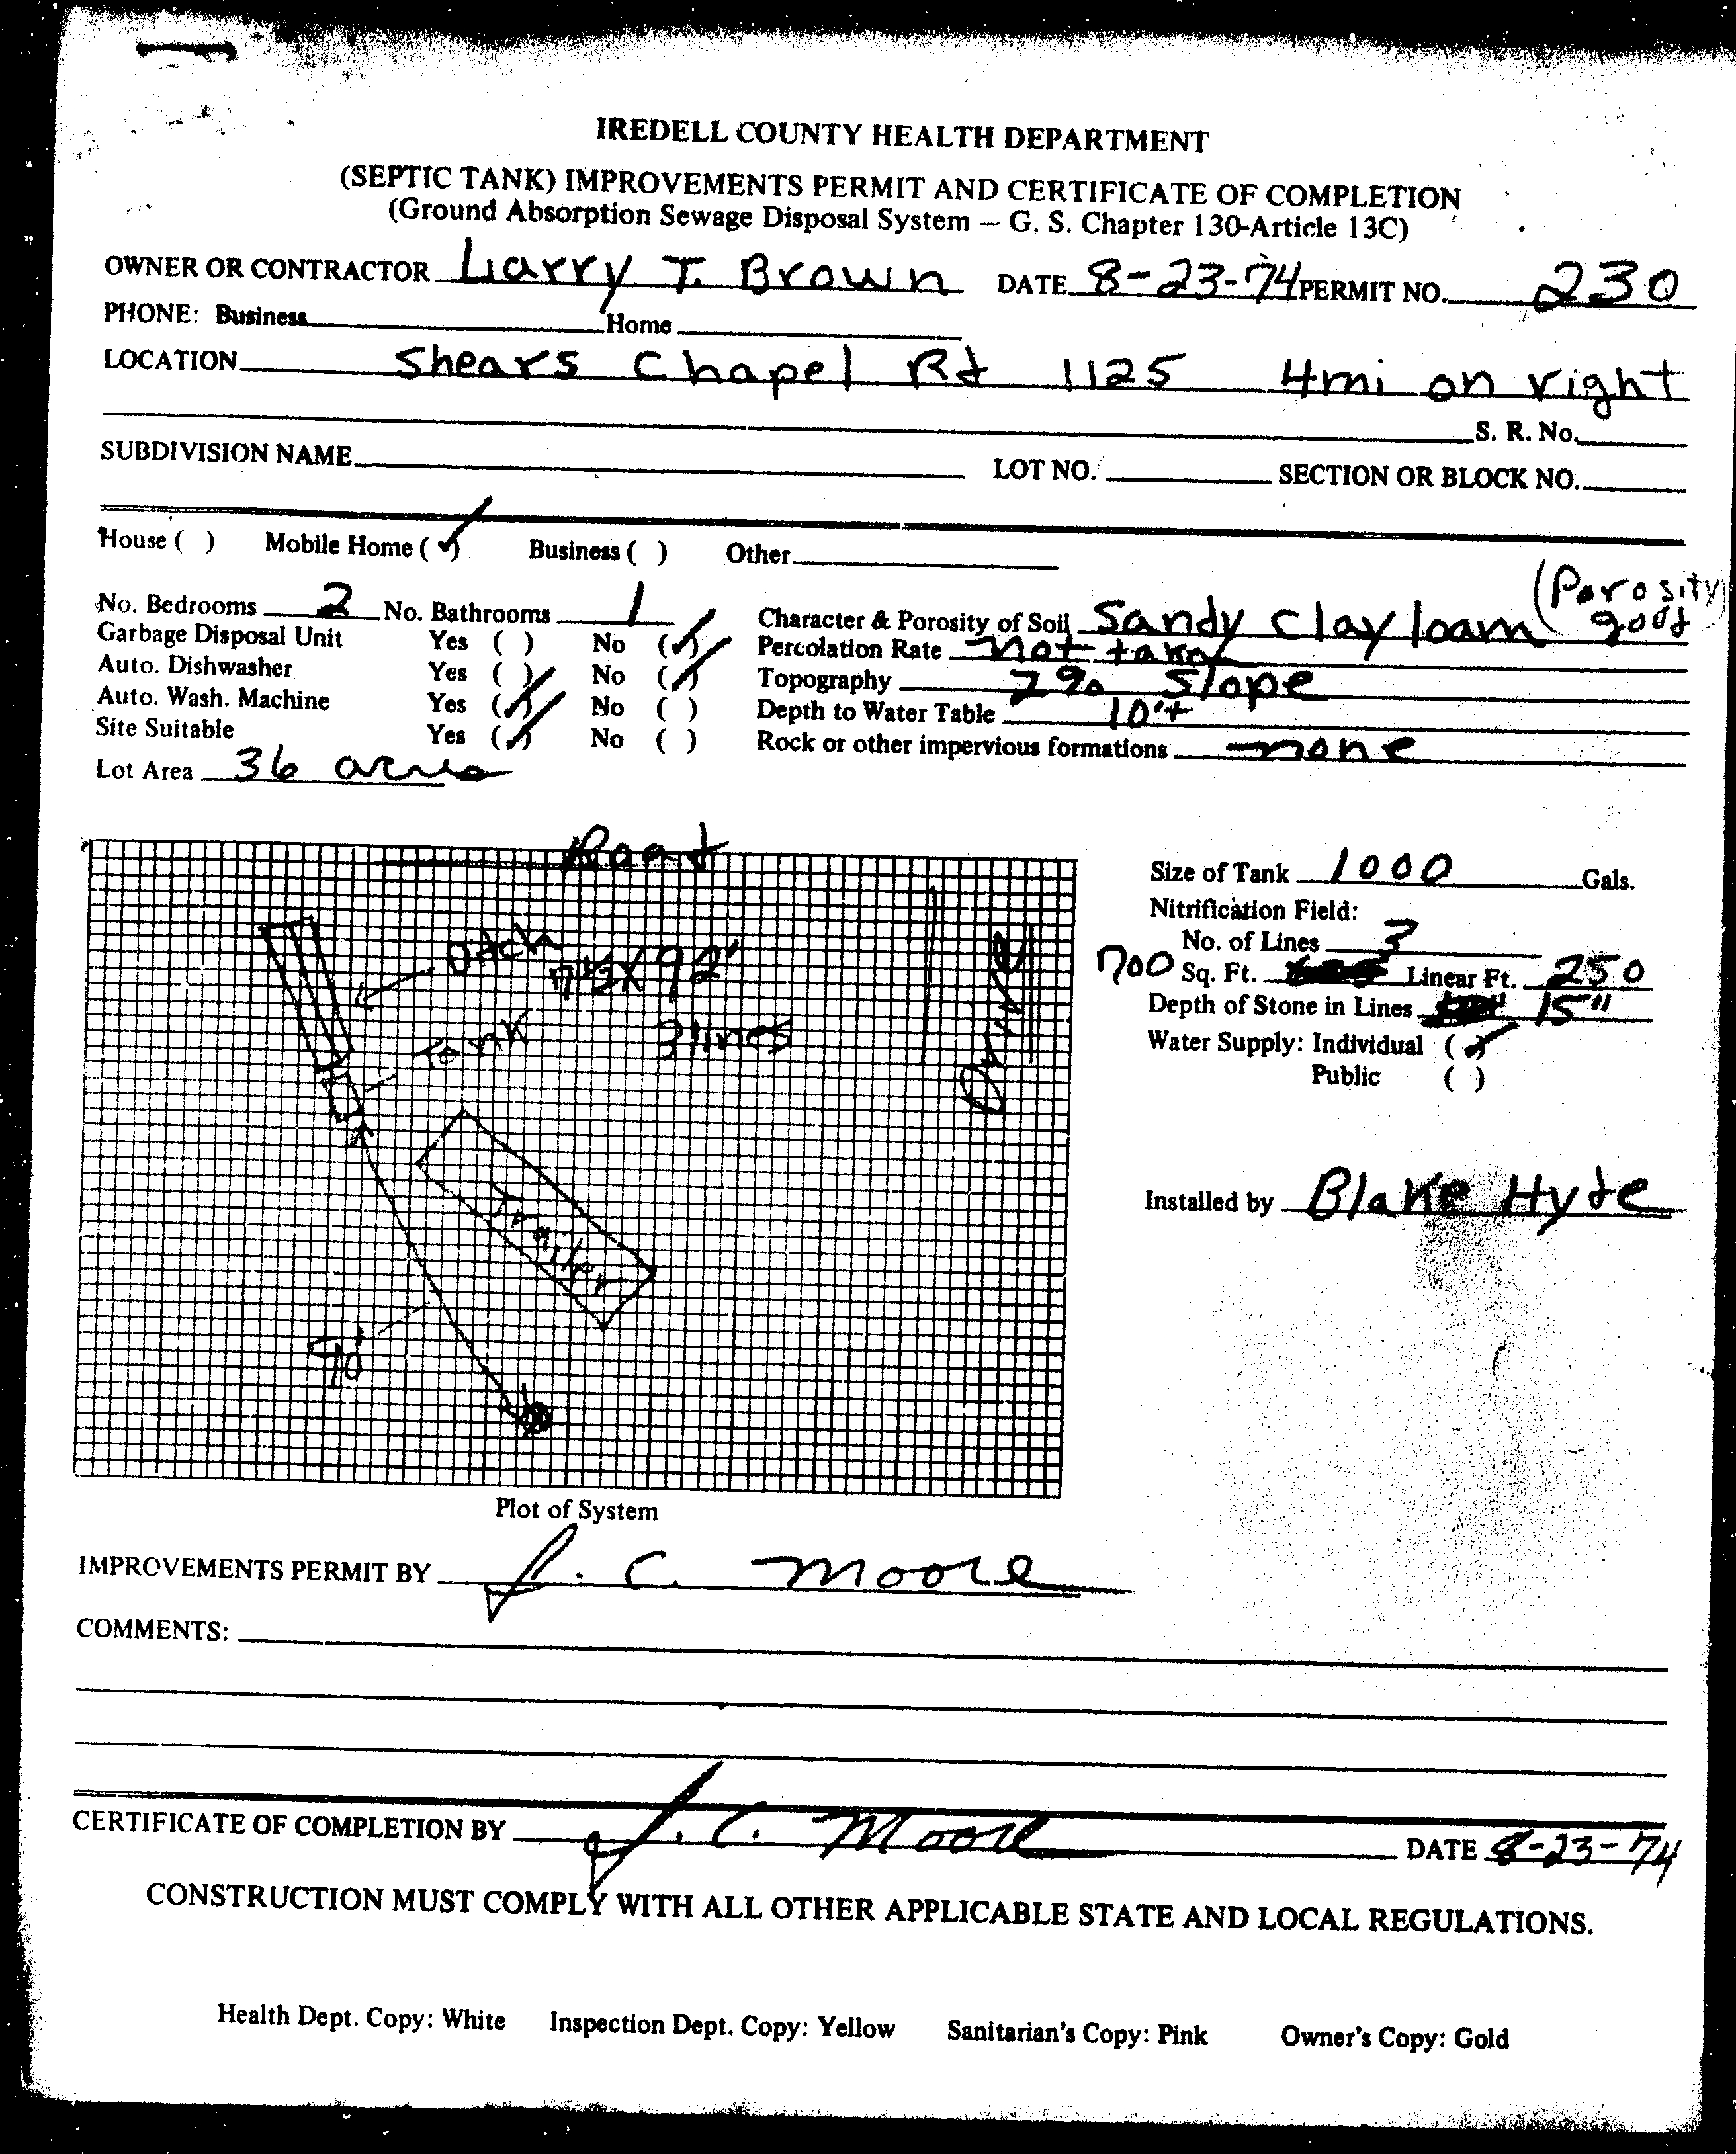 IREDELL COUNTY HEALTH DEPARTMENT
(SEPTIC TANK) IMPROVEMENTS PERMIT AND CERTIFICATE OF COMPLETION
(Ground Absorption Sewage Disposal System – G. S. Chapter 130-Article 13C)
OWNER OR CONTRACTOR Larry T. Brown DATE 8-23-74 PERMIT NO. 230
PHONE: Business Home
LOCATION Shears Chapel Rd 1125 4mi on right
S. R. No.
SUBDIVISION NAME LOT NO. SECTION OR BLOCK NO.
House ( ) Mobile Home (✓) Business ( ) Other
No. Bedrooms 2 No. Bathrooms 1
Garbage Disposal Unit Yes ( ) No (✓)
Auto. Dishwasher Yes ( ) No (✓)
Auto. Wash. Machine Yes (✓) No ( )
Site Suitable Yes (✓) No ( )
Lot Area 36 acres
Character & Porosity of Soil Sandy clay loam (Porosity good
Percolation Rate not taken
Topography 2% Slope
Depth to Water Table 10'+
Rock or other impervious formations none
Road
Ditch
X 92'
3 lines
Tank
Drive
Trailer
90'
Plot of System
Size of Tank 1000 Gals.
Nitrification Field:
No. of Lines 3
700 Sq. Ft. Linear Ft. 250
Depth of Stone in Lines 15"
Water Supply: Individual (✓)
Public ( )
Installed by Blake Hyde
IMPROVEMENTS PERMIT BY J. C. Moore
COMMENTS:
CERTIFICATE OF COMPLETION BY J. C. Moore DATE 8-23-74
CONSTRUCTION MUST COMPLY WITH ALL OTHER APPLICABLE STATE AND LOCAL REGULATIONS.
Health Dept. Copy: White Inspection Dept. Copy: Yellow Sanitarian's Copy: Pink Owner's Copy: Gold